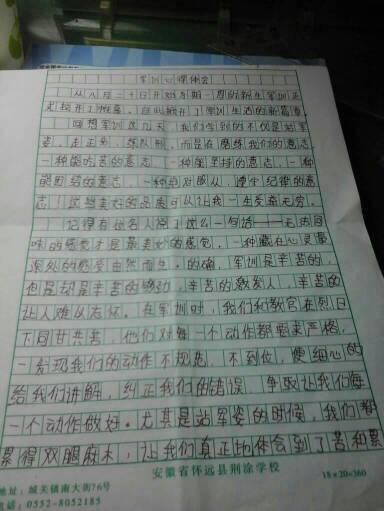 军训心得体会
从八月二十日开始为期一周的新生军训正
式拉开了帷幕，自此掀开了军训生活的新篇章
回想军训这几天，我们学到的不仅是站军
姿，走正步，练队列，而是在磨练我们的意志
一种能吃苦的意志，一种能坚持的意志，一种
能团结的意志，一种绝对服从，遵守纪律的意
志，这些美好的品质可以让我一生受益无穷。
记得有位名人说了这么一句话——无法回
味的感觉才是最美妙的感觉，一种藏在心灵最
深处的感受由然而生。的确，军训是辛苦的，
也是却是辛苦的感动，辛苦的教发人，辛苦的
让人难以忘怀。在军训时，我们和教官在烈日
下同甘共苦，他们对每一个动作都要求严格，
一发现我们的动作不规范，不到位，便细心的
给我们讲解，纠正我们的错误，争取让我们每
一个动作做好。尤其是站军姿的时候，我们都
累得双腿麻木，让我们真正地体会到了苦和累
安徽省怀远县荆涂学校
18×20=360
地址：城关镇南大街76号
电话：0552-8052185